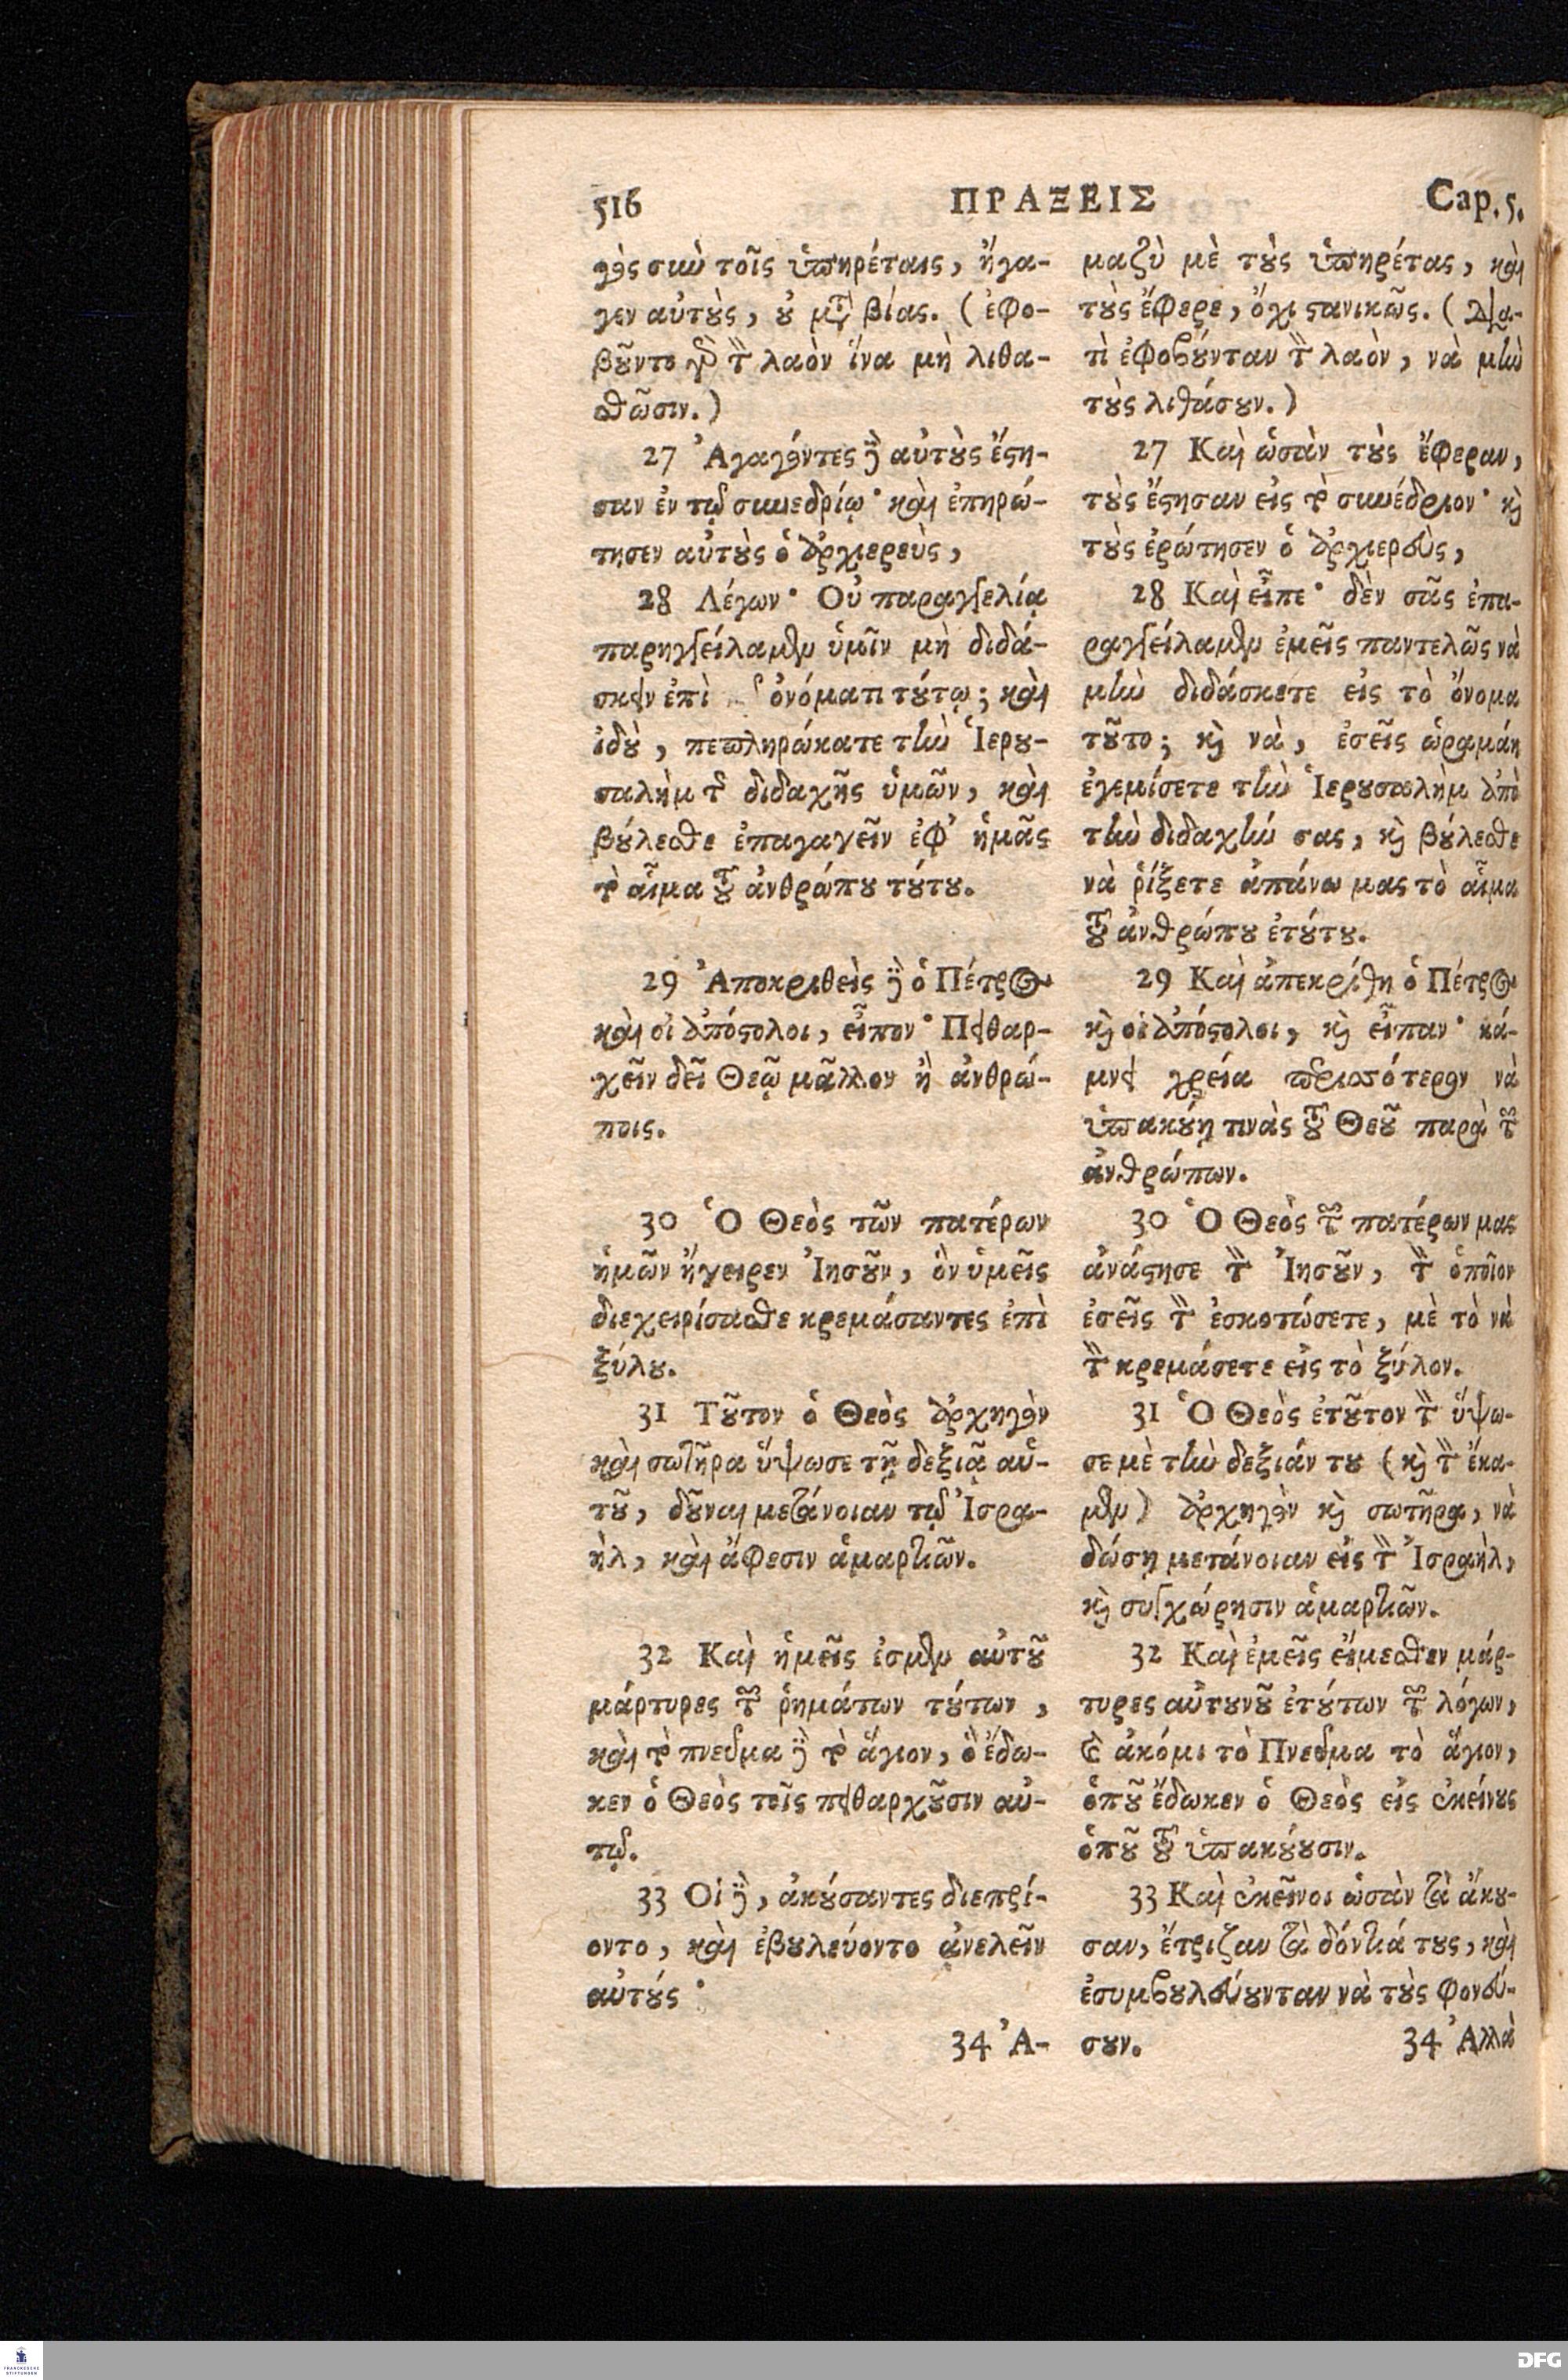 516 ΠΡΑΞΕΙΣ Cap. 5.
γὸς σὺν τοῖς ὑπηρέταις, ἤγα-
γεν αὐτοὺς, οὐ μετὰ βίας. (ἐφο-
βοῦντο γὰρ τὸν λαὸν ἵνα μὴ λιθα-
σθῶσιν.)
27 Ἀγαγόντες δὲ αὐτοὺς ἔςη-
σαν ἐν τῷ συνεδρίῳ· καὶ ἐπηρώ-
τησεν αὐτοὺς ὁ ἀρχιερεὺς,
28 Λέγων· Οὐ παραγγελίᾳ
παρηγγείλαμεν ὑμῖν μὴ διδά-
σκειν ἐπὶ ὀνόματι τούτῳ; καὶ
ἰδοὺ, πεπληρώκατε τὴν Ἱερου-
σαλὴμ τῆς διδαχῆς ὑμῶν, καὶ
βούλεσθε ἐπαγαγεῖν ἐφ' ἡμᾶς
τὸ αἷμα τοῦ ἀνθρώπου τούτου.
29 Ἀποκριθεὶς δὲ ὁ Πέτρος
καὶ οἱ ἀπόςολοι, εἶπον· Πειθαρ-
χεῖν δεῖ Θεῷ μᾶλλον ἢ ἀνθρώ-
ποις.
30 Ὁ Θεὸς τῶν πατέρων
ἡμῶν ἤγειρεν Ἰησοῦν, ὃν ὑμεῖς
διεχειρίσασθε κρεμάσαντες ἐπὶ
ξύλου.
31 Τοῦτον ὁ Θεὸς ἀρχηγὸν
καὶ σωτῆρα ὕψωσε τῇ δεξιᾷ αὑ-
τοῦ, δοῦναι μετάνοιαν τῷ Ἰσρα-
ὴλ, καὶ ἄφεσιν ἁμαρτιῶν.
32 Καὶ ἡμεῖς ἐσμεν αὐτοῦ
μάρτυρες τῶν ῥημάτων τούτων,
καὶ τὸ πνεῦμα δὲ τὸ ἅγιον, ὃ ἔδω-
κεν ὁ Θεὸς τοῖς πειθαρχοῦσιν αὐ-
τῷ.
33 Οἱ δὲ, ἀκούσαντες διεπρί-
οντο, καὶ ἐβουλεύοντο ἀνελεῖν
αὐτούς·
34 Ἀ-
μαζὺ μὲ τοὺς ὑπηρέτας, καὶ
τοὺς ἔφερε, ὄχι ςανικῶς. (δια-
τὶ ἐφοβούνταν τὸν λαὸν, νὰ μὴν
τοὺς λιθάσουν.)
27 Καὶ ὡσὰν τοὺς ἔφεραν,
τοὺς ἔςησαν εἰς τὸ συνέδριον· καὶ
τοὺς ἐρώτησεν ὁ ἀρχιερεὺς,
28 Καὶ εἶπε· δὲν σᾶς ἐπα-
ραγγείλαμεν ἐμεῖς παντελῶς νὰ
μὴν διδάσκετε εἰς τὸ ὄνομα
τοῦτο; καὶ νὰ, ἐσεῖς ὡραμάν
ἐγεμίσετε τὴν Ἱερουσαλὴμ ἀπὸ
τὴν διδαχήν σας, καὶ βούλεσθε
νὰ ῥίξετε ἀπάνω μας τὸ αἷμα
τοῦ ἀνθρώπου ἐτούτου.
29 Καὶ ἀπεκρίθη ὁ Πέτρος
καὶ οἱ ἀπόςολοι, καὶ εἶπαν· κά-
μνει χρεία περισσότερον νὰ
ὑπακούῃ τινὰς τοῦ Θεοῦ παρὰ τῶν
ἀνθρώπων.
30 Ὁ Θεὸς τῶν πατέρων μας
ἀνάςησε τὸν Ἰησοῦν, τὸν ὁποῖον
ἐσεῖς τὸν ἐσκοτώσετε, μὲ τὸ νὰ
τὸν κρεμάσετε εἰς τὸ ξύλον.
31 Ὁ Θεὸς ἐτοῦτον τὸν ὕψω-
σε μὲ τὴν δεξιάν του (καὶ τὸν ἔκα-
μεν) ἀρχηγὸν καὶ σωτῆρα, νὰ
δώσῃ μετάνοιαν εἰς τὸν Ἰσραὴλ,
καὶ συγχώρησιν ἁμαρτιῶν.
32 Καὶ ἐμεῖς εἴμεσθεν μάρ-
τυρες αὐτουνοῦ ἐτούτων τῶν λόγων,
καὶ ἀκόμι τὸ Πνεῦμα τὸ ἅγιον,
ὁποῦ ἔδωκεν ὁ Θεὸς εἰς ἐκείνους
ὁποῦ τοῦ ὑπακούουσιν.
33 Καὶ ἐκεῖνοι ὡσὰν τὰ ἄκου-
σαν, ἔτριζαν τὰ δόντιά τους, καὶ
ἐσυμβουλεύουνταν νὰ τοὺς φονεύ-
σουν. 34 Ἀλλὰ
FRANCKESCHE STIFTUNGEN
DFG